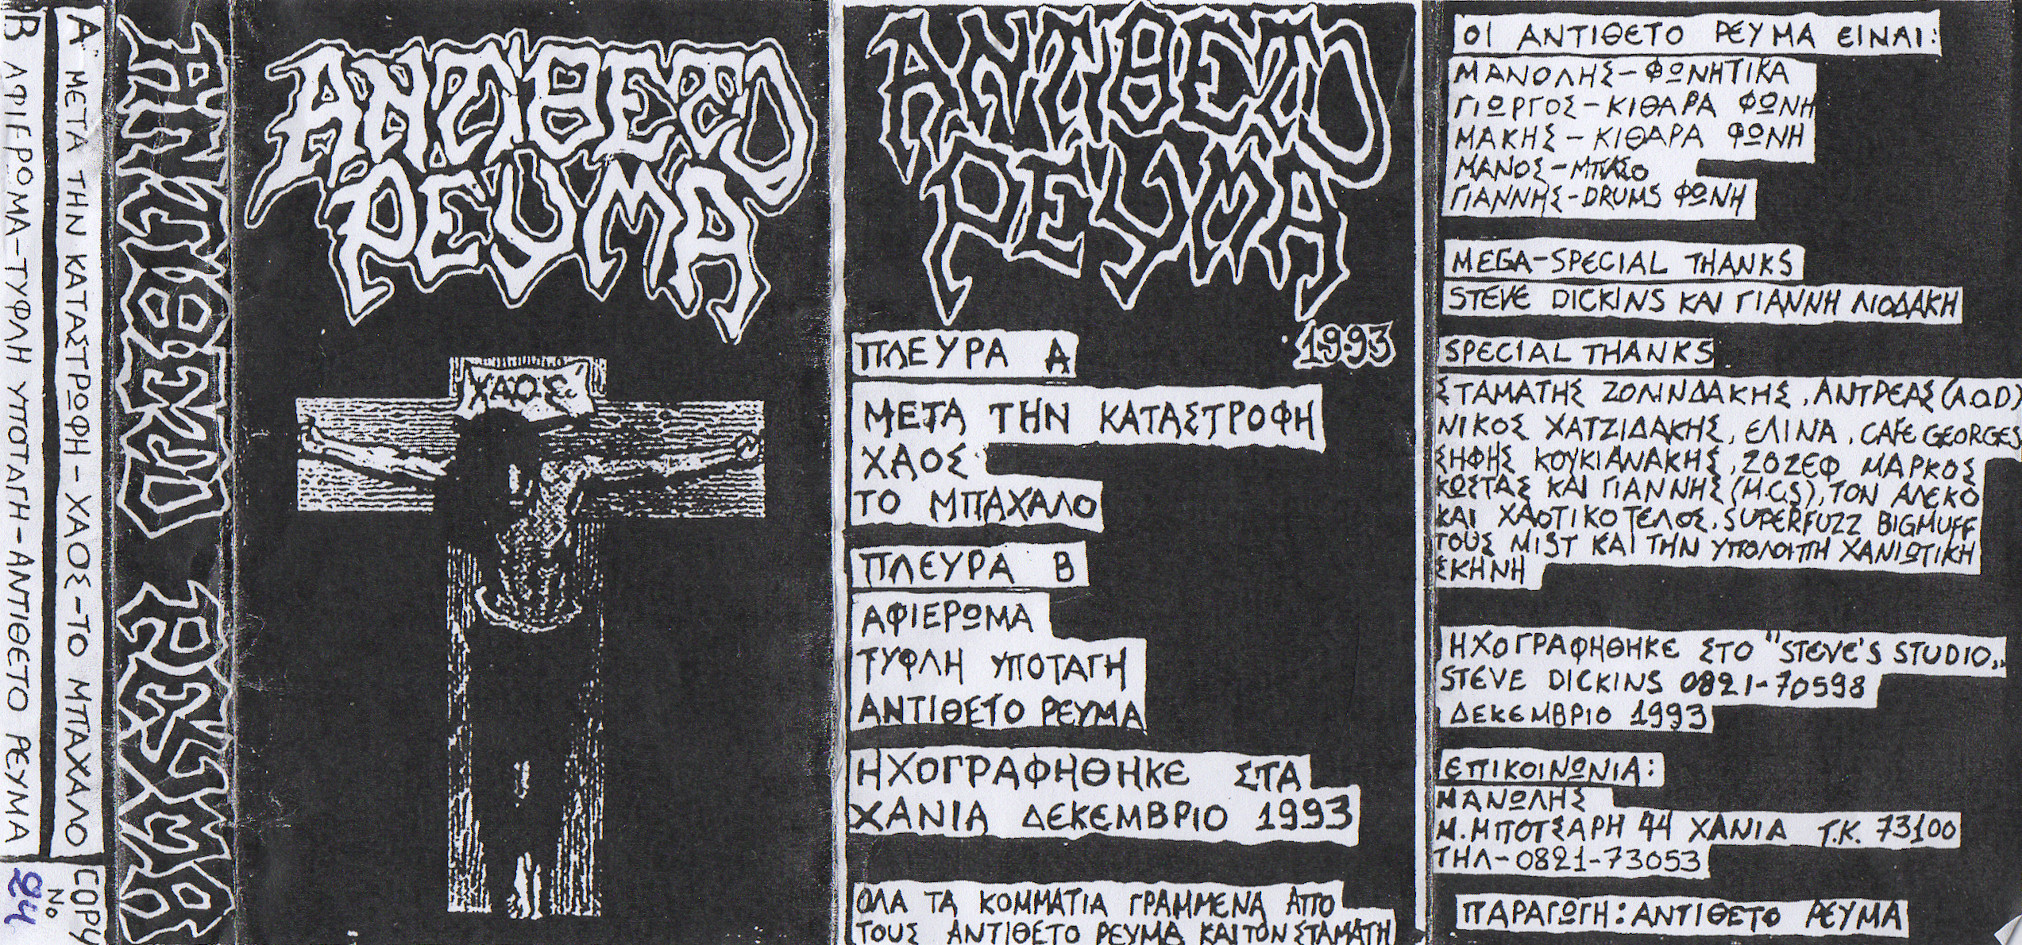 Α' ΜΕΤΑ ΤΗΝ ΚΑΤΑΣΤΡΩΦΗ - ΧΑΟΣ - ΤΟ ΜΠΑΧΑΛΟ
Β ΑΦΙΕΡΟΜΑ - ΤΥΦΛΗ ΥΠΟΤΑΓΗ - ΑΝΤΙΘΕΤΟ ΡΕΥΜΑ
COPY
No
24
ΑΝΤΙΘΕΤΟ ΡΕΥΜΑ
ΑΝΤΙΘΕΤΟ
ΡΕΥΜΑ
ΧΑΟΣ
ΑΝΤΙΘΕΤΟ
ΡΕΥΜΑ
1993
ΠΛΕΥΡΑ Α
ΜΕΤΑ ΤΗΝ ΚΑΤΑΣΤΡΟΦΗ
ΧΑΟΣ
ΤΟ ΜΠΑΧΑΛΟ
ΠΛΕΥΡΑ Β
ΑΦΙΕΡΩΜΑ
ΤΥΦΛΗ ΥΠΟΤΑΓΗ
ΑΝΤΙΘΕΤΟ ΡΕΥΜΑ
ΗΧΟΓΡΑΦΗΘΗΚΕ ΣΤΑ
ΧΑΝΙΑ ΔΕΚΕΜΒΡΙΟ 1993
ΟΛΑ ΤΑ ΚΟΜΜΑΤΙΑ ΓΡΑΜΜΕΝΑ ΑΠΟ
ΤΟΥΣ ΑΝΤΙΘΕΤΟ ΡΕΥΜΑ ΚΑΙ ΤΟΝ ΣΤΑΜΑΤΗ
ΟΙ ΑΝΤΙΘΕΤΟ ΡΕΥΜΑ ΕΙΝΑΙ:
ΜΑΝΟΛΗΣ - ΦΩΝΗΤΙΚΑ
ΓΙΩΡΓΟΣ - ΚΙΘΑΡΑ ΦΩΝΗ
ΜΑΚΗΣ - ΚΙΘΑΡΑ ΦΩΝΗ
ΜΑΝΟΣ - ΜΠΑΣΟ
ΓΙΑΝΝΗΣ - DRUMS ΦΩΝΗ
MEGA-SPECIAL THANKS
STEVE DICKINS ΚΑΙ ΓΙΑΝΝΗ ΛΙΟΔΑΚΗ
SPECIAL THANKS
ΣΤΑΜΑΤΗΣ ΖΟΛΙΝΔΑΚΗΣ, ΑΝΤΡΕΑΣ (A.O.D)
ΝΙΚΟΣ ΧΑΤΖΙΔΑΚΗΣ, ΕΛΙΝΑ, CAFE GEORGES
ΣΗΦΗΣ ΚΟΥΚΙΑΝΑΚΗΣ, ΖΟΖΕΦ ΜΑΡΚΟΣ
ΚΩΣΤΑΣ ΚΑΙ ΓΙΑΝΝΗΣ (M.C.S), ΤΟΝ ΑΛΕΚΟ
ΚΑΙ ΧΑΟΤΙΚΟ ΤΕΛΟΣ, SUPERFUZZ BIGMUFF
ΤΟΥΣ MIST ΚΑΙ ΤΗΝ ΥΠΟΛΟΙΠΗ ΧΑΝΙΩΤΙΚΗ
ΣΚΗΝΗ
ΗΧΟΓΡΑΦΗΘΗΚΕ ΣΤΟ "STEVE'S STUDIO"
STEVE DICKINS 0821-70598
ΔΕΚΕΜΒΡΙΟ 1993
ΕΠΙΚΟΙΝΩΝΙΑ:
ΜΑΝΩΛΗΣ
Μ. ΜΠΟΤΣΑΡΗ 44 ΧΑΝΙΑ Τ.Κ. 73100
ΤΗΛ - 0821-73053
ΠΑΡΑΓΩΓΗ: ΑΝΤΙΘΕΤΟ ΡΕΥΜΑ